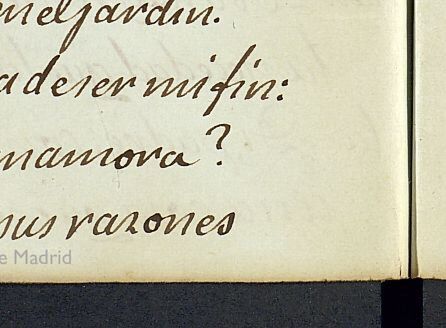 neljardin.
adeser mi fin:
namora?
sus razones
e Madrid